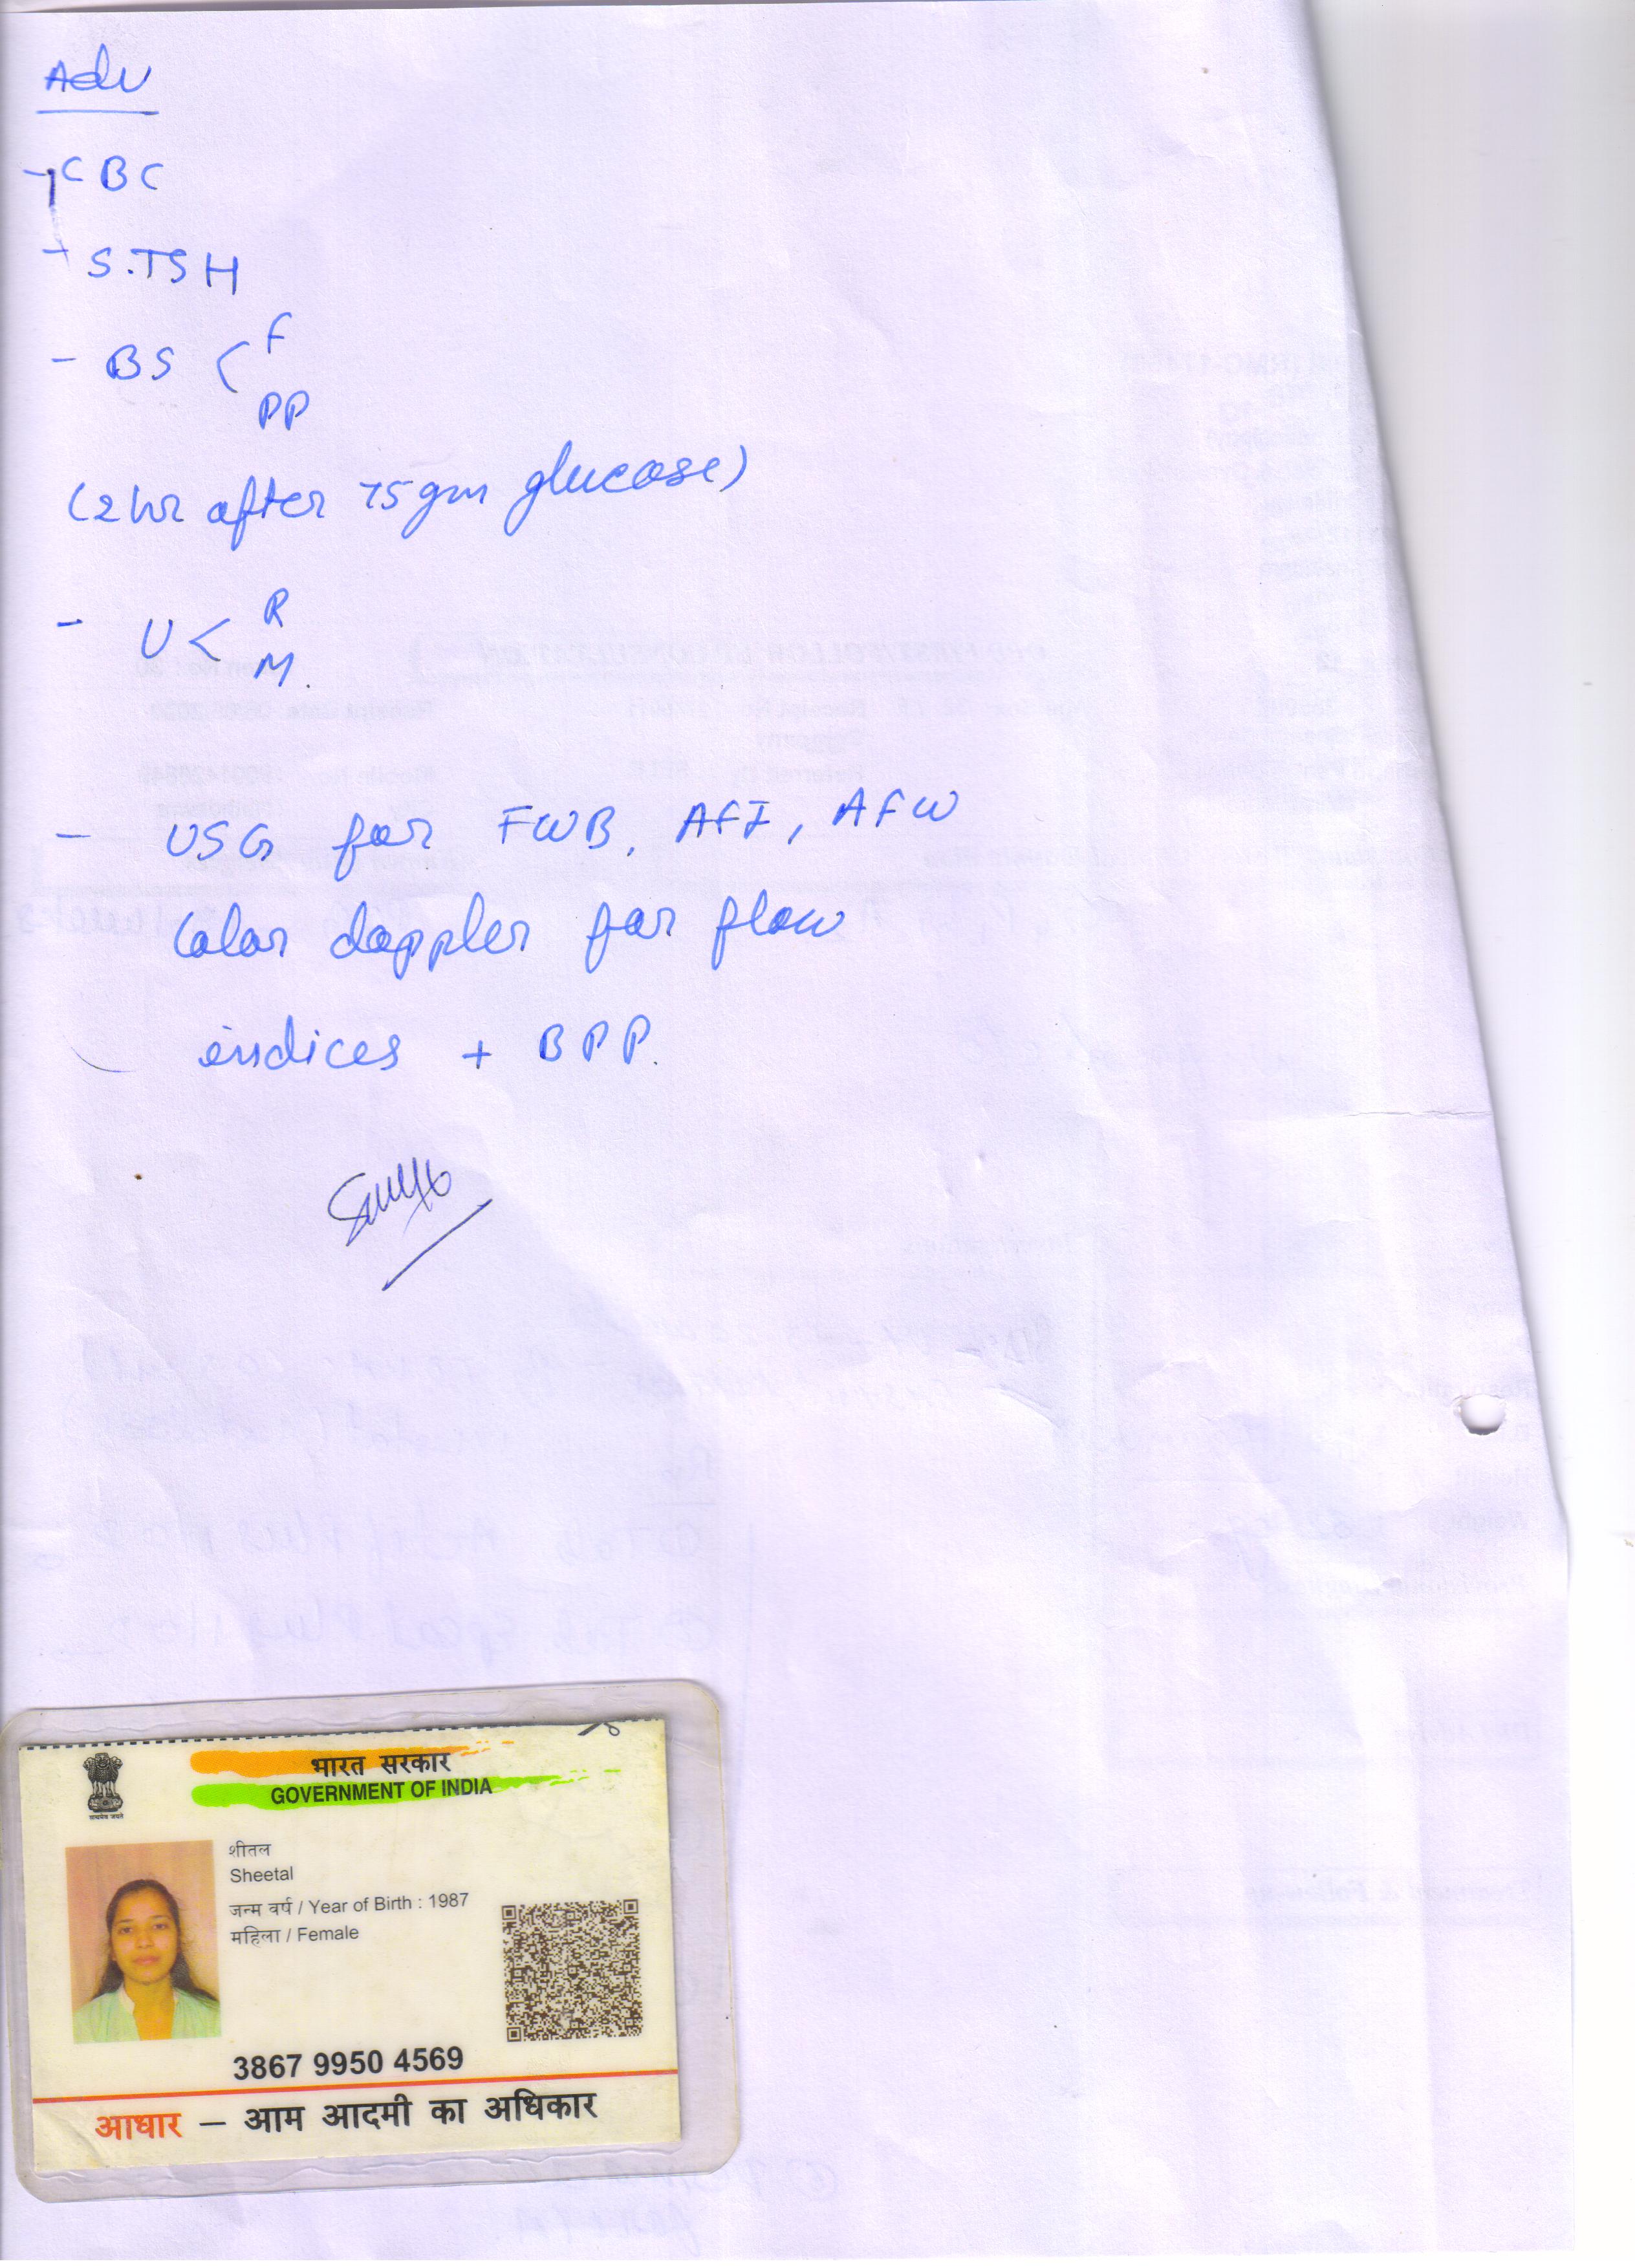 Adv
- CBC
- S.TSH
- BS < F
PP
(2 hr after 75 gm glucose)
- U < R
M.
- USG for FWB, AFI, AFW
Color doppler for flow
indices + BPP.
भारत सरकार
GOVERNMENT OF INDIA
सत्यमेव जयते
शीतल
Sheetal
जन्म वर्ष / Year of Birth : 1987
महिला / Female
3867 9950 4569
आधार – आम आदमी का अधिकार